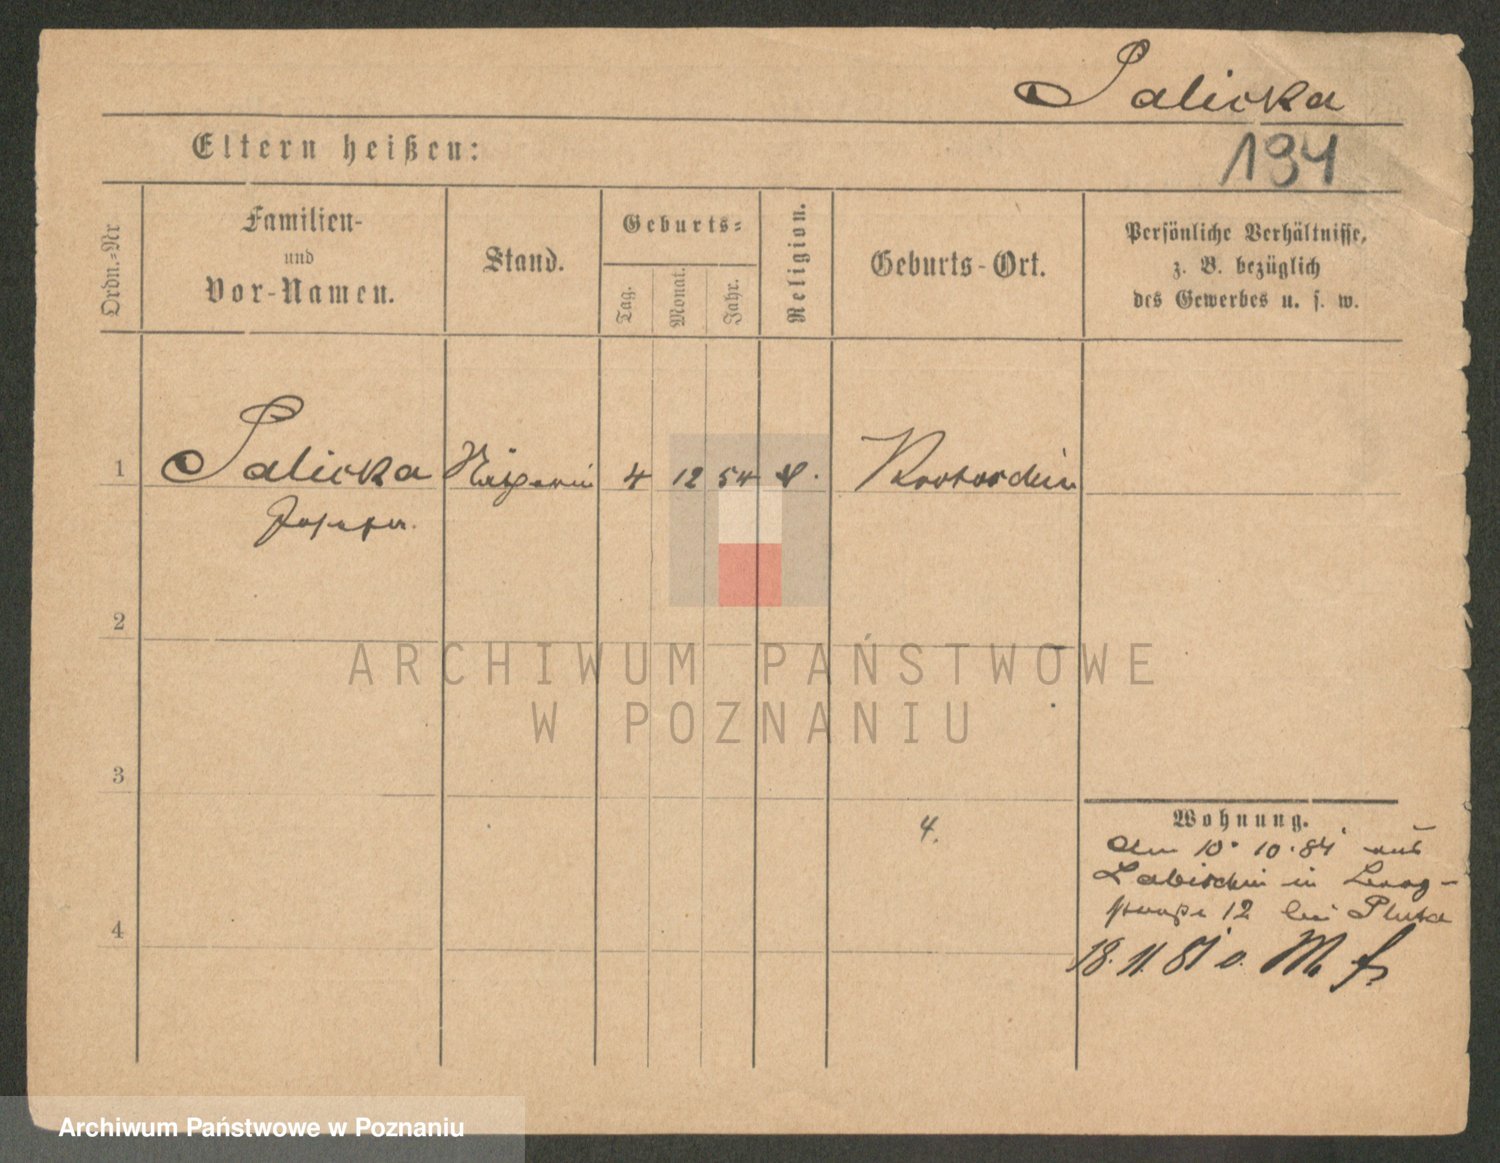 Salicka
194
Eltern heißen:
Ordn.-Nr
Familien-
und
Vor-Namen.
Stand.
Geburts-
Tag.
Monat.
Jahr.
Religion.
Geburts-Ort.
Persönliche Verhältnisse,
z. B. bezüglich
des Gewerbes u. s. w.
1 Salicka 4 12 54 Krotoschin
2
3
4.
Wohnung.
Am 10. 10. 84 aus
Labischin in Lang-
straße 12 bei Pluta
4
18. 11. 81
ARCHIWUM PAŃSTWOWE
W POZNANIU
Archiwum Państwowe w Poznaniu